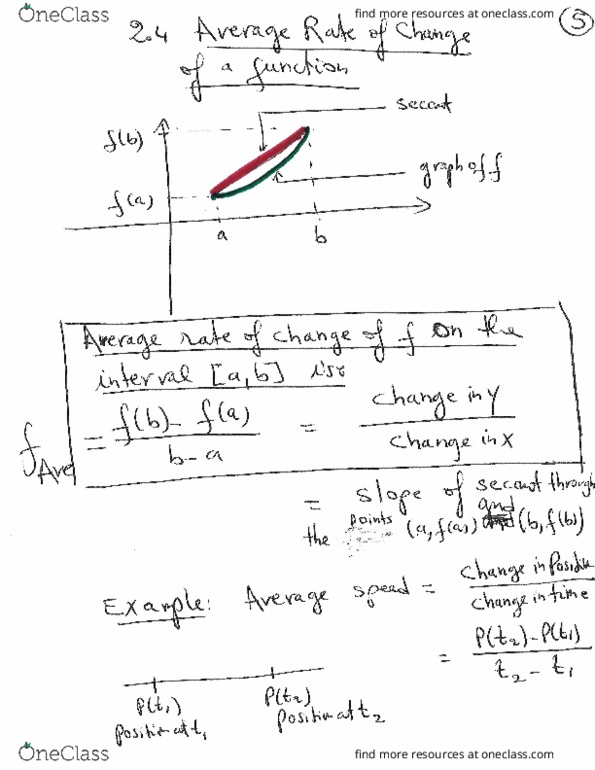 OneClass
find more resources at oneclass.com
5
2.4 Average Rate of Change
of a function
secant
f(b)
graph of f
f(a)
a
b
Average rate of change of f on the
interval [a,b] is:
f Ave = f(b) - f(a) / b - a = change in y / change in x
= slope of secant through
the points (a, f(a)) and (b, f(b))
Example: Average speed = change in position / change in time
= P(t2) - P(t1) / t2 - t1
P(t1)
position at t1
P(t2)
position at t2
OneClass
find more resources at oneclass.com